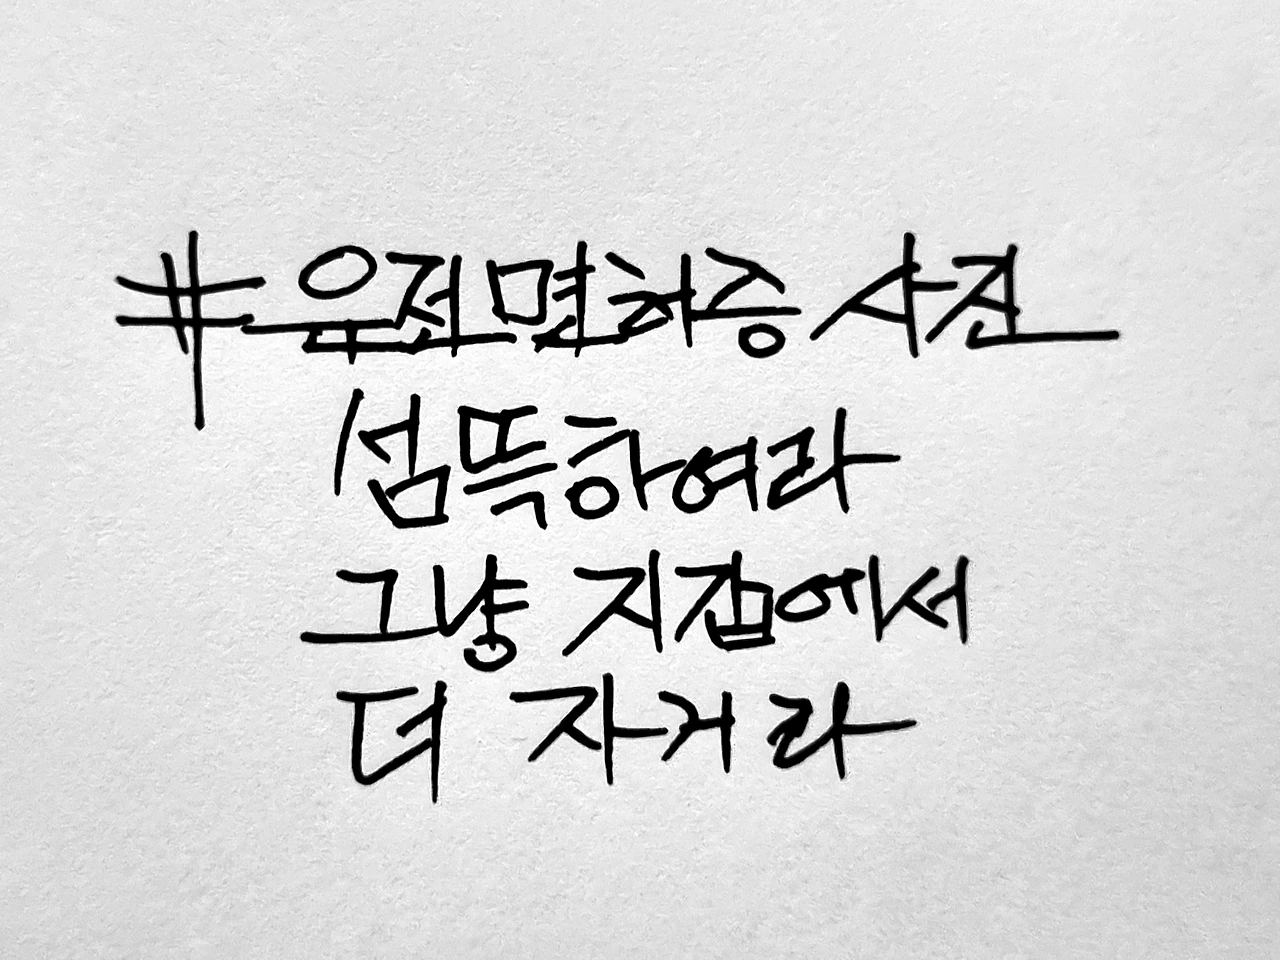 #운전면허증 사진
섬뜩하여라
그냥 지갑에서
더 자거라